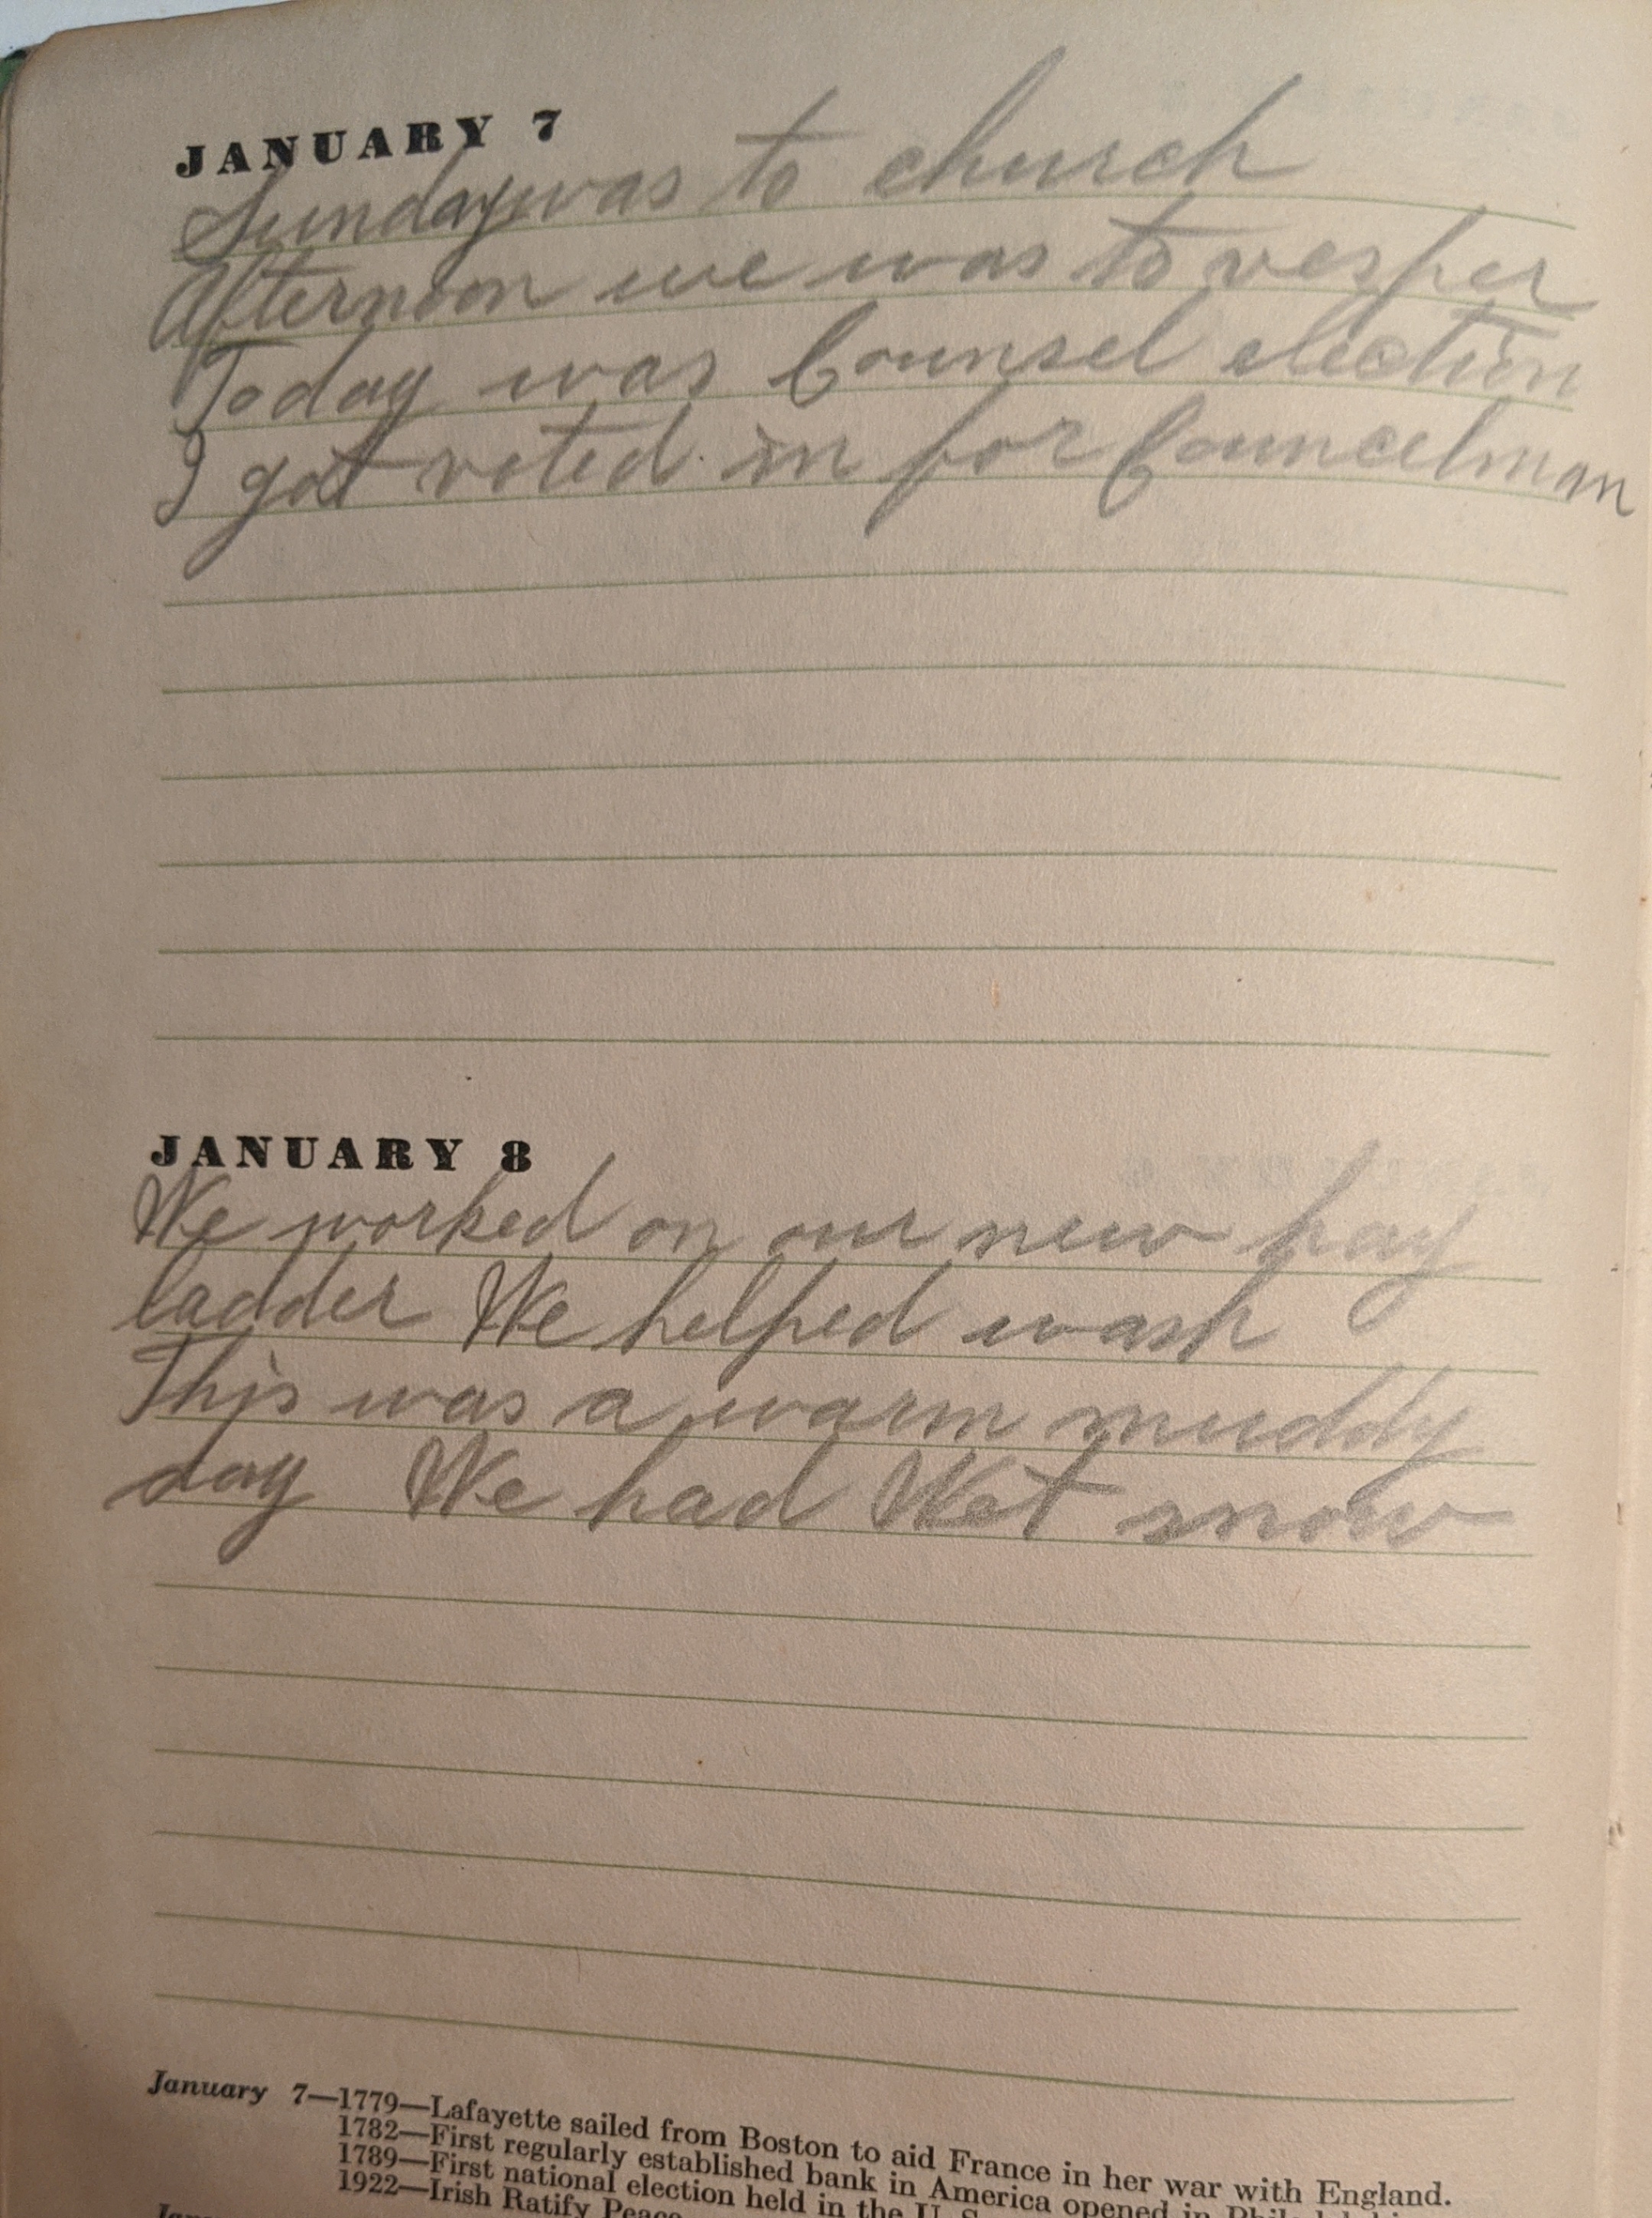 JANUARY 7
Sunday was to church
Afternoon we was to vesper
Today was Counsel election
I got voted in for Councelman
JANUARY 8
We worked on our new hay
ladder We helped wash
This was a warm muddy
day We had Wet snow
January 7—1779—Lafayette sailed from Boston to aid France in her war with England.
1782—First regularly established bank in America opened in
1789—First national election held in the U. S.
1922—Irish Ratify Peace